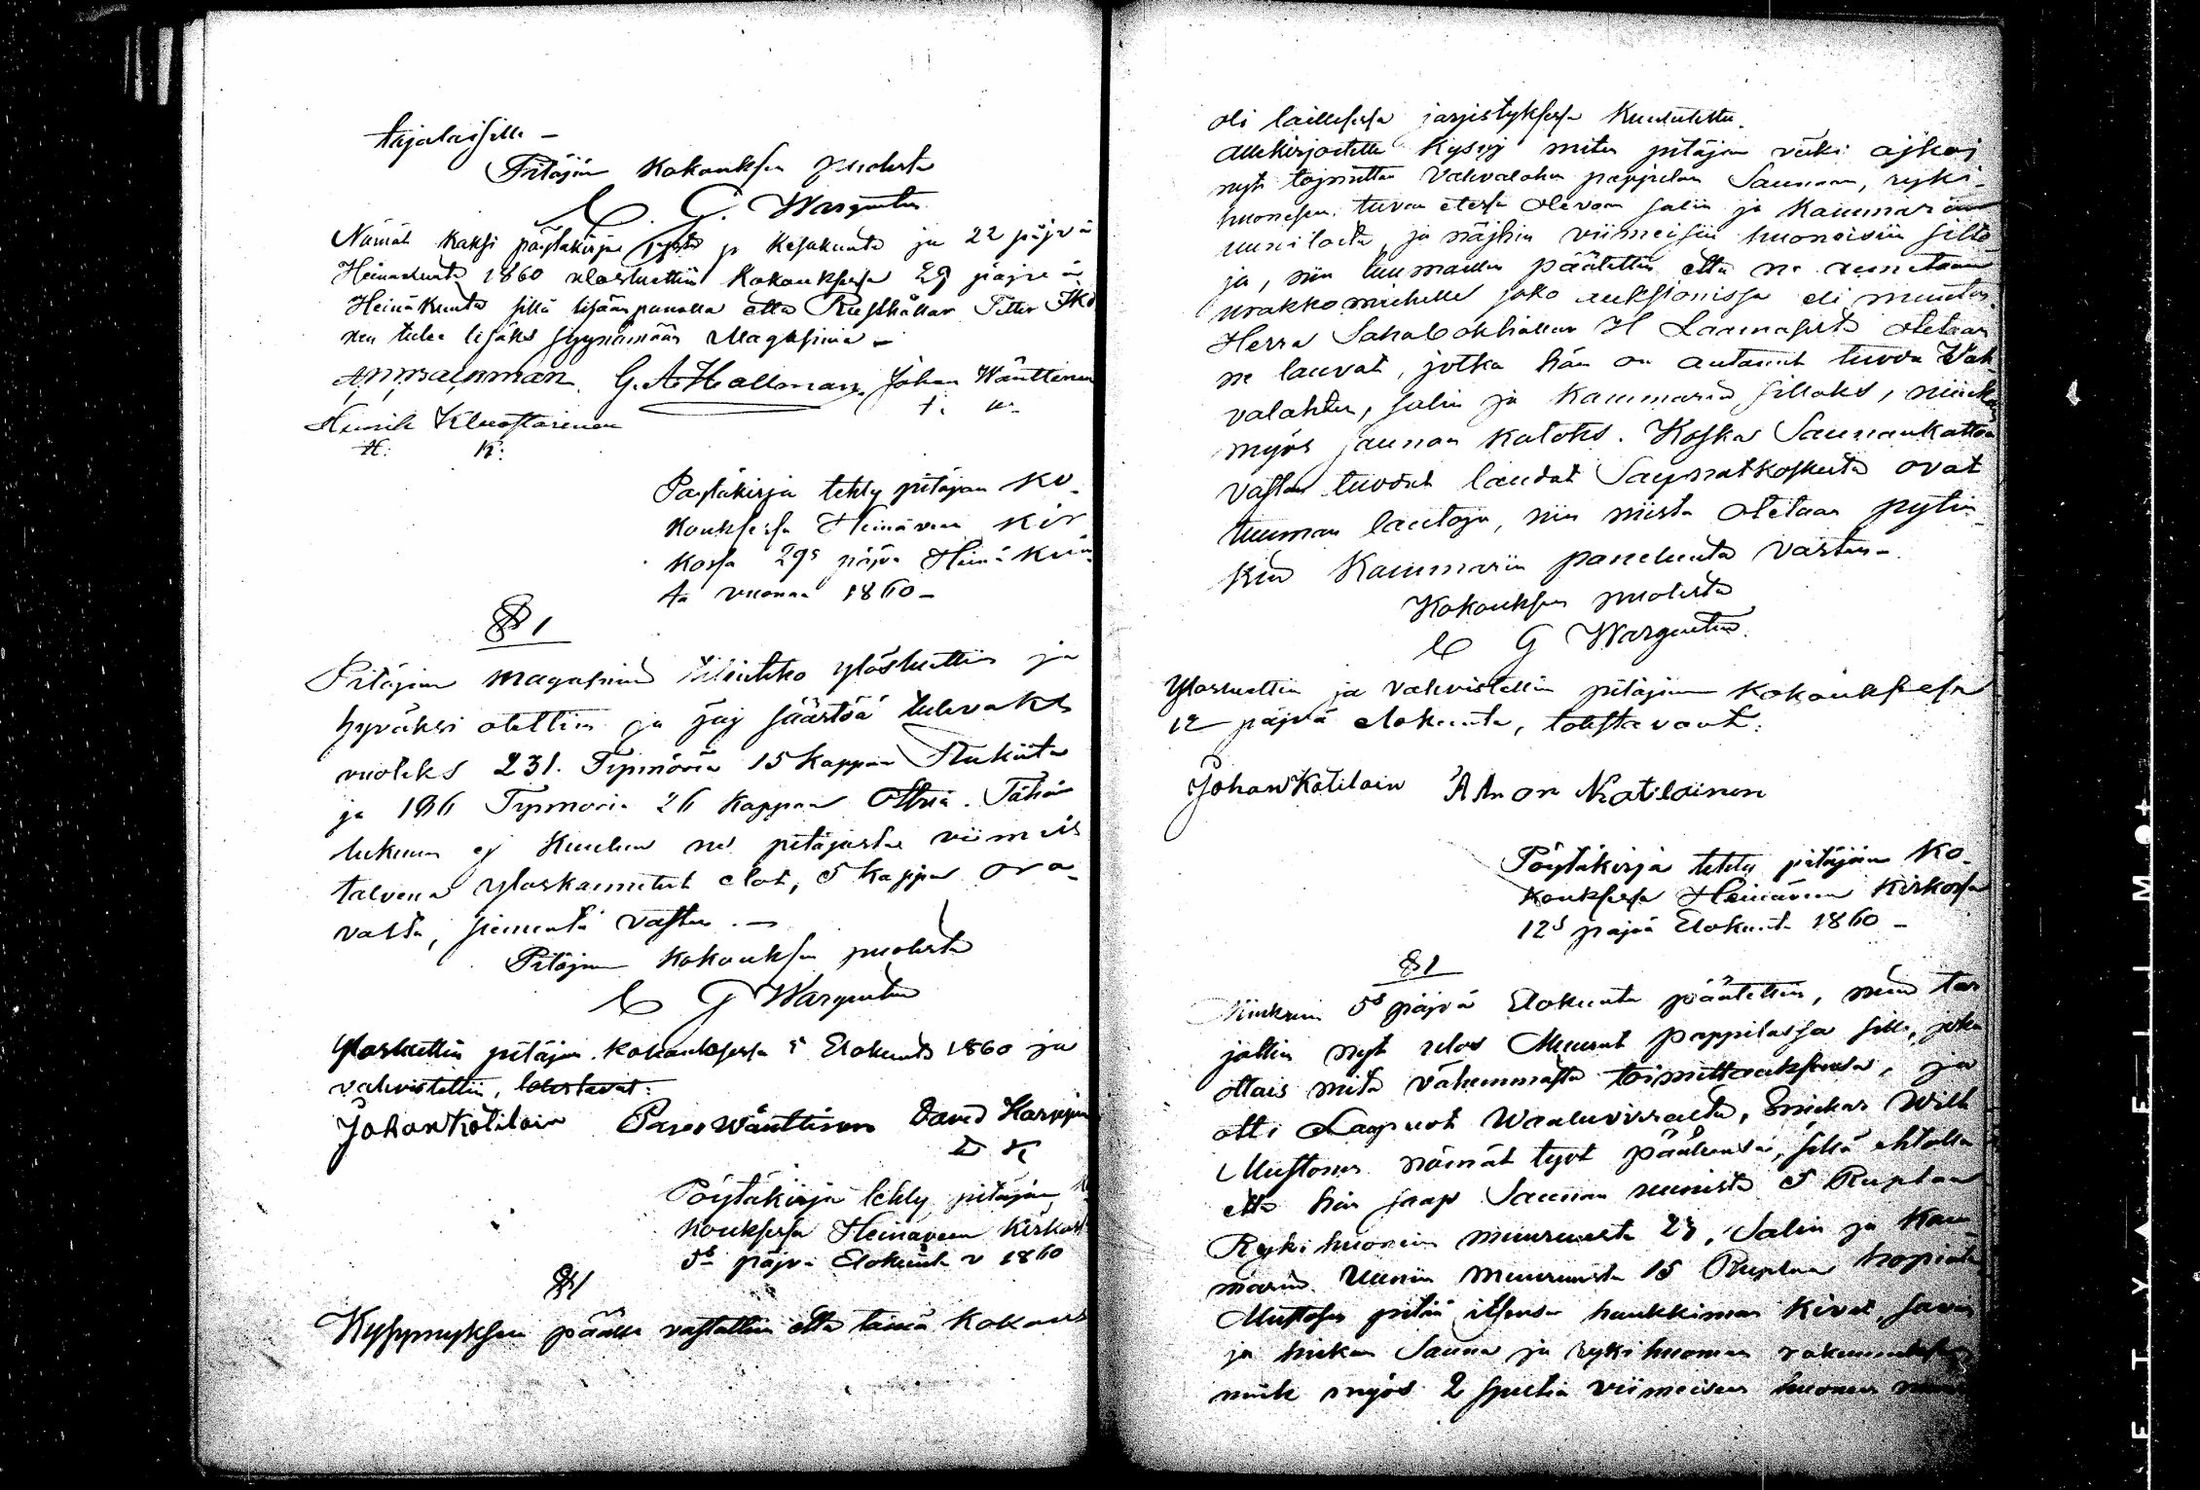 tajalaisille –
Pitäjän Kokouksen puolesta
C. G. Wargentin
Nämät kaksi pöytäkirjaa Kesäkuuta ja 22 päjvä
Heinäkuuta 1860 ulosluettiin Kokouksessa 29 päjvä
Heinäkuuta sillä lisäänpanolla että Petter
nen tulee lisäks syynämään Magasinia –
G. A. Hallman. Johan Wänttinen
Henrik Kluostarinen
H: K:
Pöytäkirja tehty pitäjän Ko-
kouksessa Heinäveen Kir
kossa 29s päjvä Heinäkuu
ta vuonna 1860 –
§ 1
Pitäjän magasinin tilinteko ylösluettiin ja
hyväksi otettiin ja jäj säästöä tulevaks
vuoteks 231. Tynnöriä 15 kappaa Rukiita
ja 196 Tynnöriä 26 kappaa Ohria. Tähän
lukuun ej kuulu ne pitäjästä viimeis
talvena ylöskannetut elot, 5 kappaa ora-
vasta, siementä vasten. –
Pitäjän kokouksen puolesta
C G Wargentin
Ylösluettiin pitäjän kokouksessa 5 Elokuuta 1860 ja
vahvistettiin, todistavat:
Johan Kotilain Paavo Wänttinen David Karppin
D K
Pöytäkirja tehty pitäjän
kouksessa Heinäveen Kirkos
5s päjvä Elokuuta v 1860
§ 1
Kysymyksen päälle vastattiin että tämä Kokous
oli laillisessa järjistyksessä Kuulutettu.
Allekirjoitettu Kysyj miten pitäjän väki ajkoj
nyt tojmittaa Vahvalahen pappilan Saunan, ryki-
huonesen, tuvan etessä olevan salin ja Kammarin
uuniloita, ja näjhin viimeisiin huoneisiin silto
ja, niin tuumailtu päätettiin että ne annetaan
urakkomiehelle joko auksionissa eli muuten.
Herra H Laamaselta otetaan
ne lauvat, jotka hän on antanut tuvva Vah-
valahten, salin ja Kammarin silloks, niinkun
myös saunan katoks. Koska Saunankattoa
vasten tuodut laudat ovat
tuuman lautoja, niin niistä otetaan pytin
kiä Kammariin panelunta vasten.
Kokouksen puolesta
C G Wargentin.
Ylösluettiin ja vahvistettiin pitäjään kokouksessa
12 päjvä elokuuta, todistavaat:
Johan Kotilain Aaron Natilainen
Pöytäkirja tehty pitäjään Ko-
kouksessa Heinäveen Kirkossa
12s päjvä Elokuuta 1860 –
§ 1
Niinkuin 5s päjvä Elokuuta päätettiin, niin tar
jottiin nyt ulos Muurut pappilassa sille, joka
ottais niitä vähemmästä toimittaaksensa, ja
otti Snickar Wilh
Mustonen nämät tyot päällensä, sillä ehtolla
että hän saap Saunan uunista 5 Ruplaa
Rykihuoneen muurusta 23, Salin ja Kam
marin Uunin muurusta 15 Ruplaa hopiata
Mustosen pitää itsensä hankkiman kivet, saven
ja hiekan Saunan ja rykihuoneen
niink myös 2 viimeisen huoneen